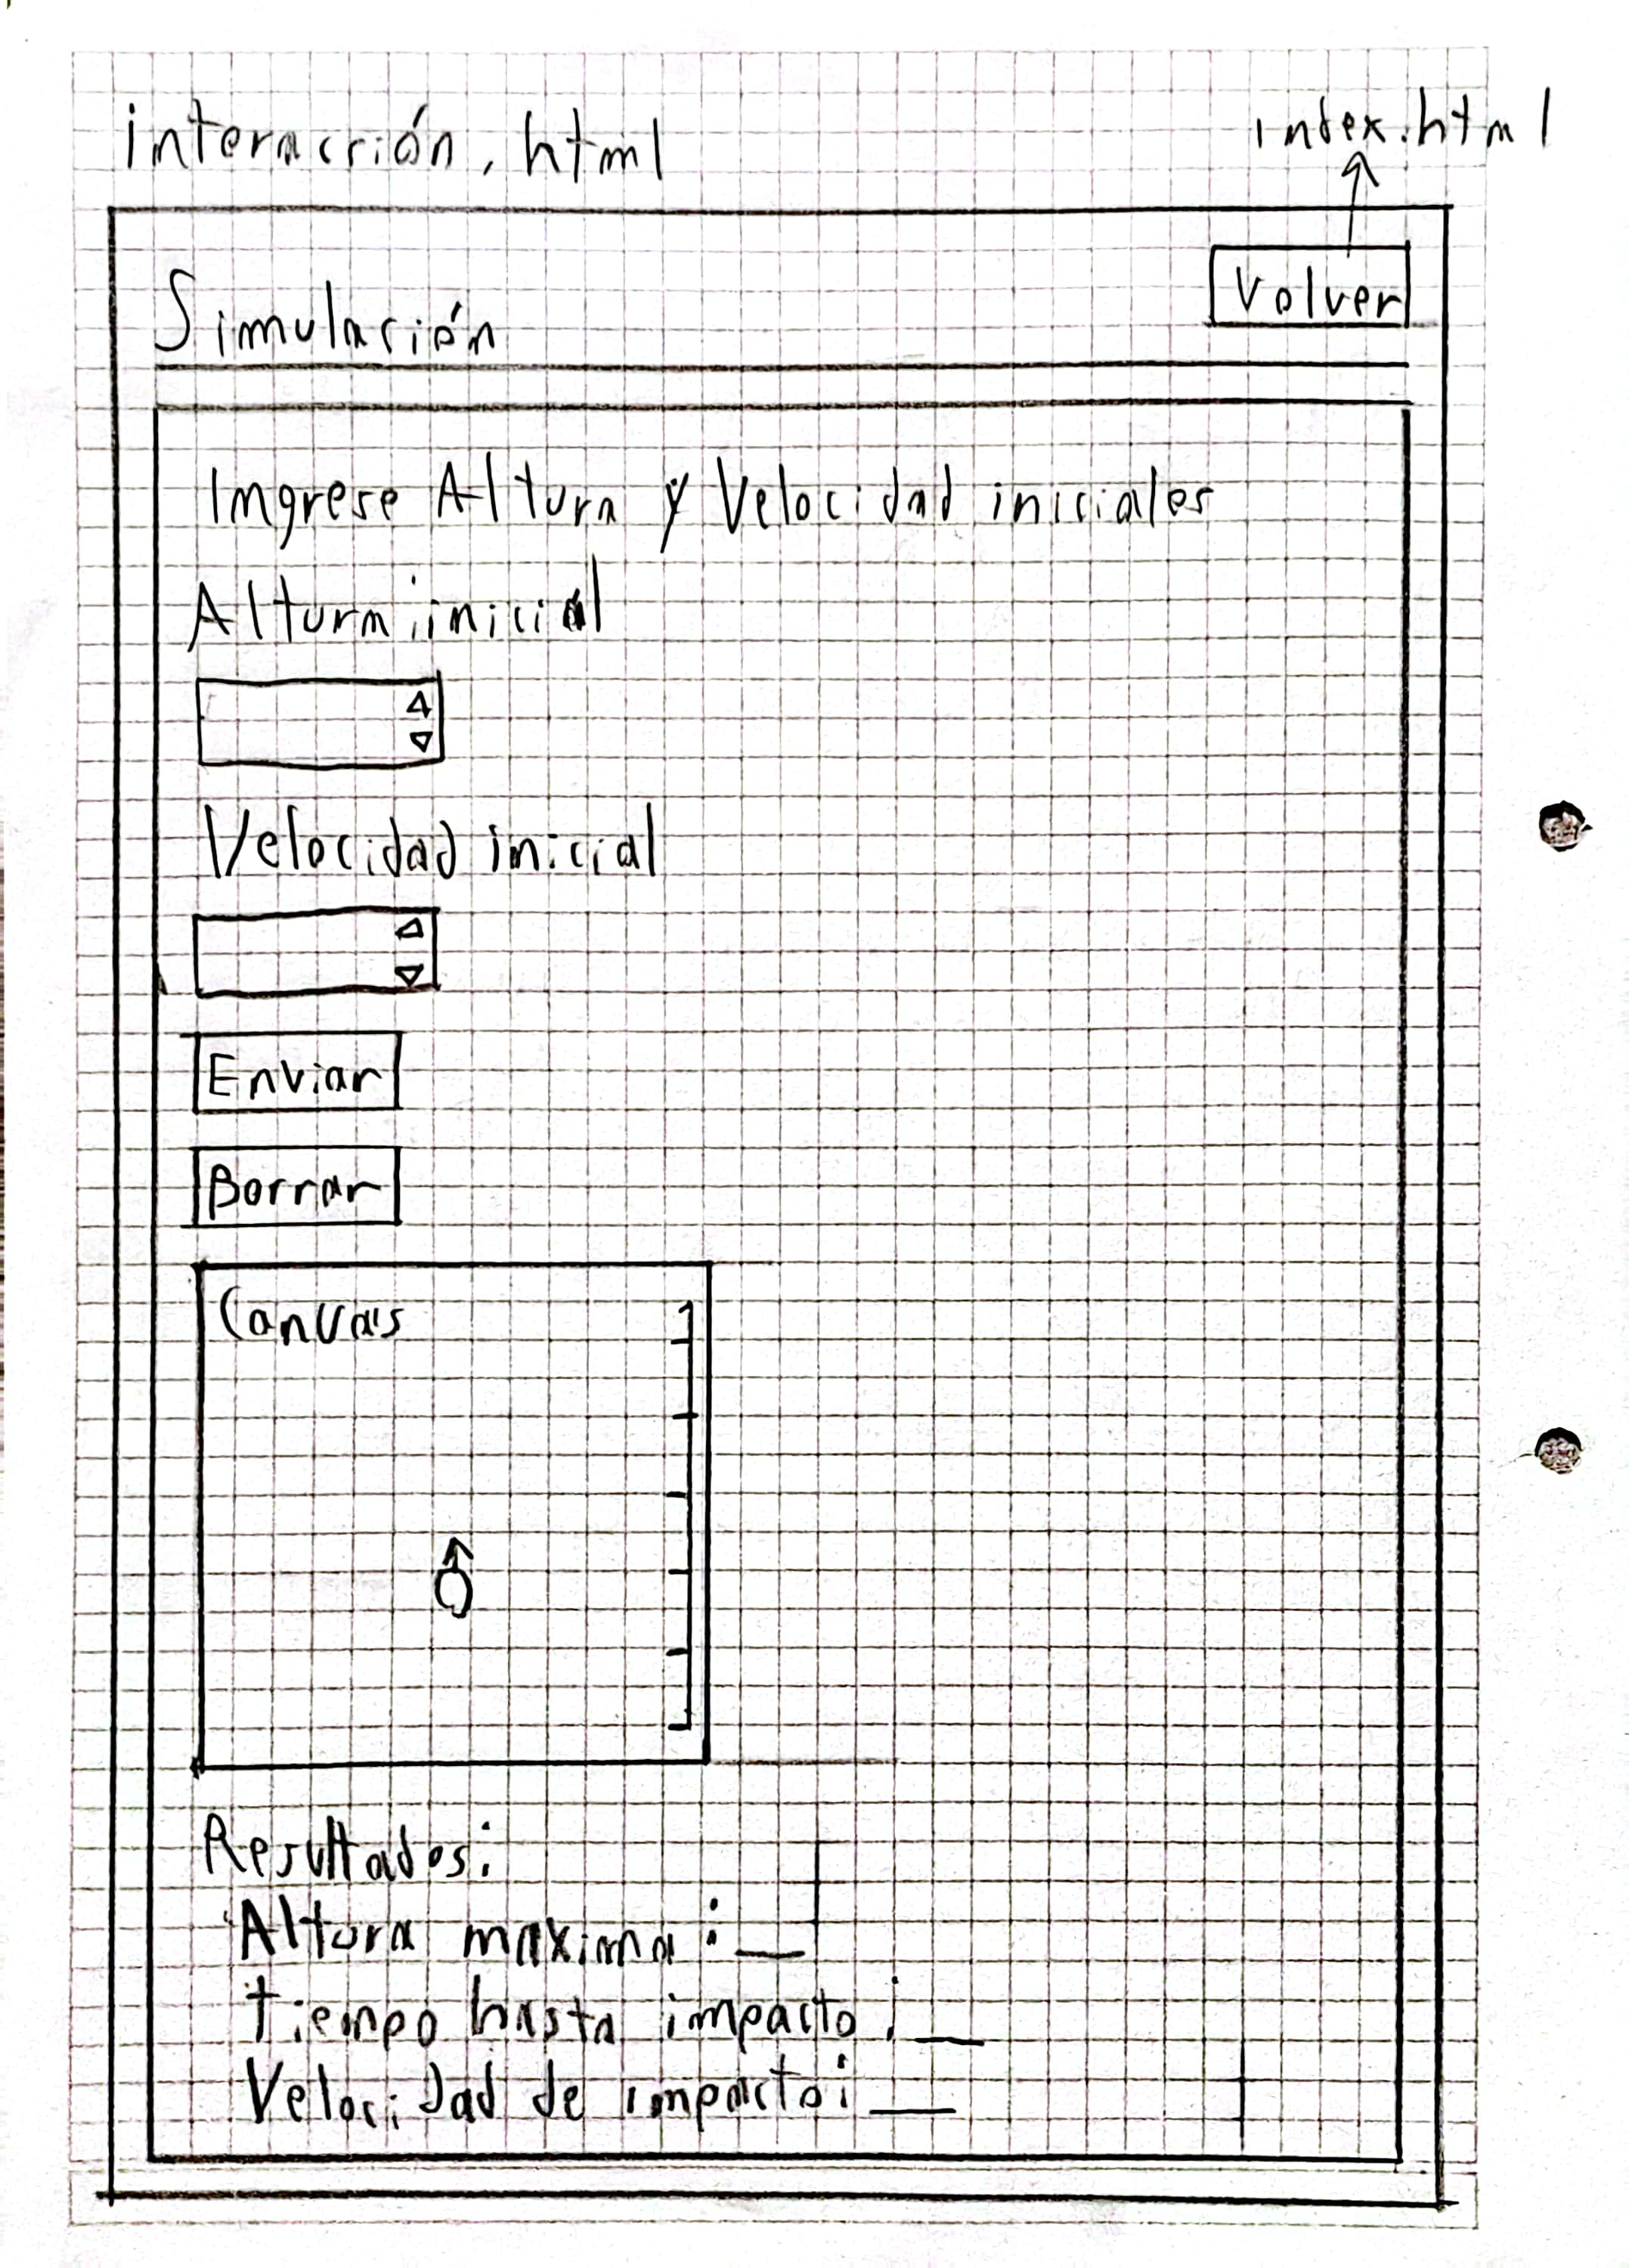 interacción.html
index.html
Volver
Simulación
Ingrese Altura y Velocidad iniciales
Altura inicial
Velocidad inicial
Enviar
Borrar
Canvas
Resultados:
Altura maxima: __
tiempo hasta impacto: __
Velocidad de impacto: __